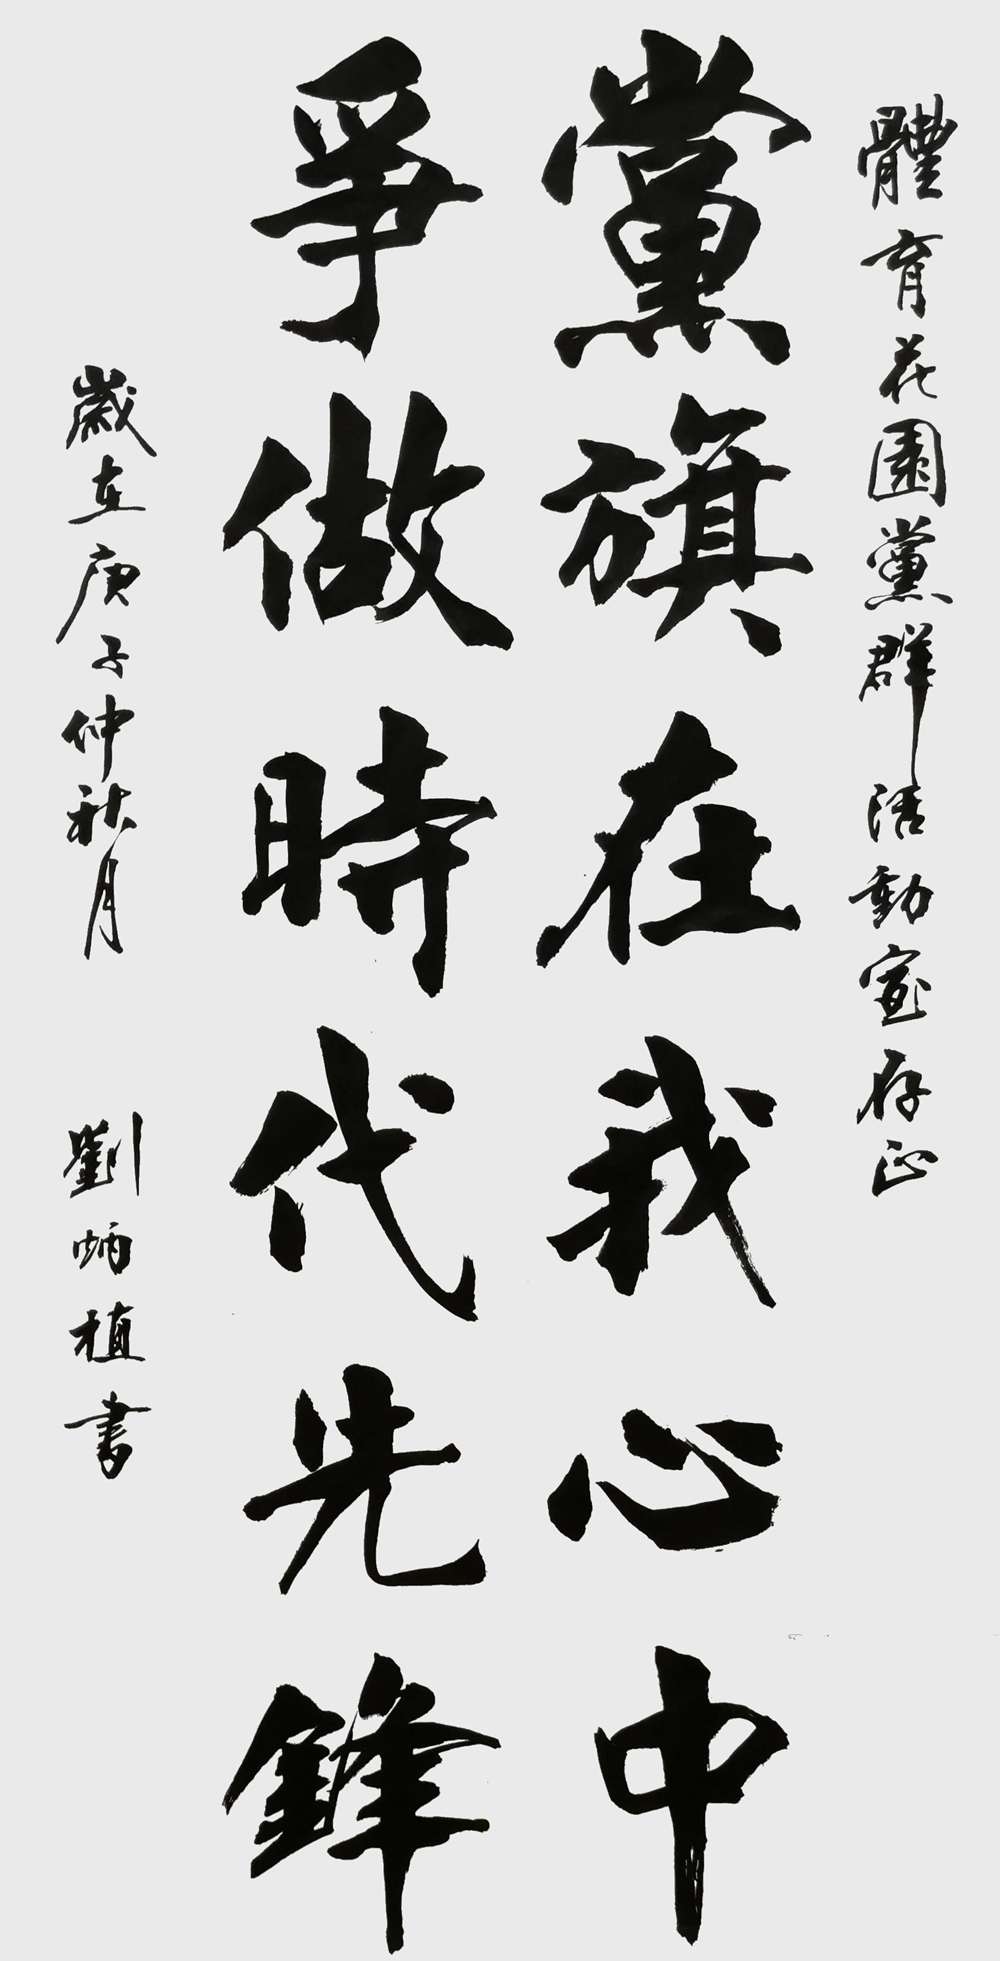 體育花園黨群活動室存正
黨旗在我心中
爭做時代先鋒
歲在庚子仲秋月
劉炳植書